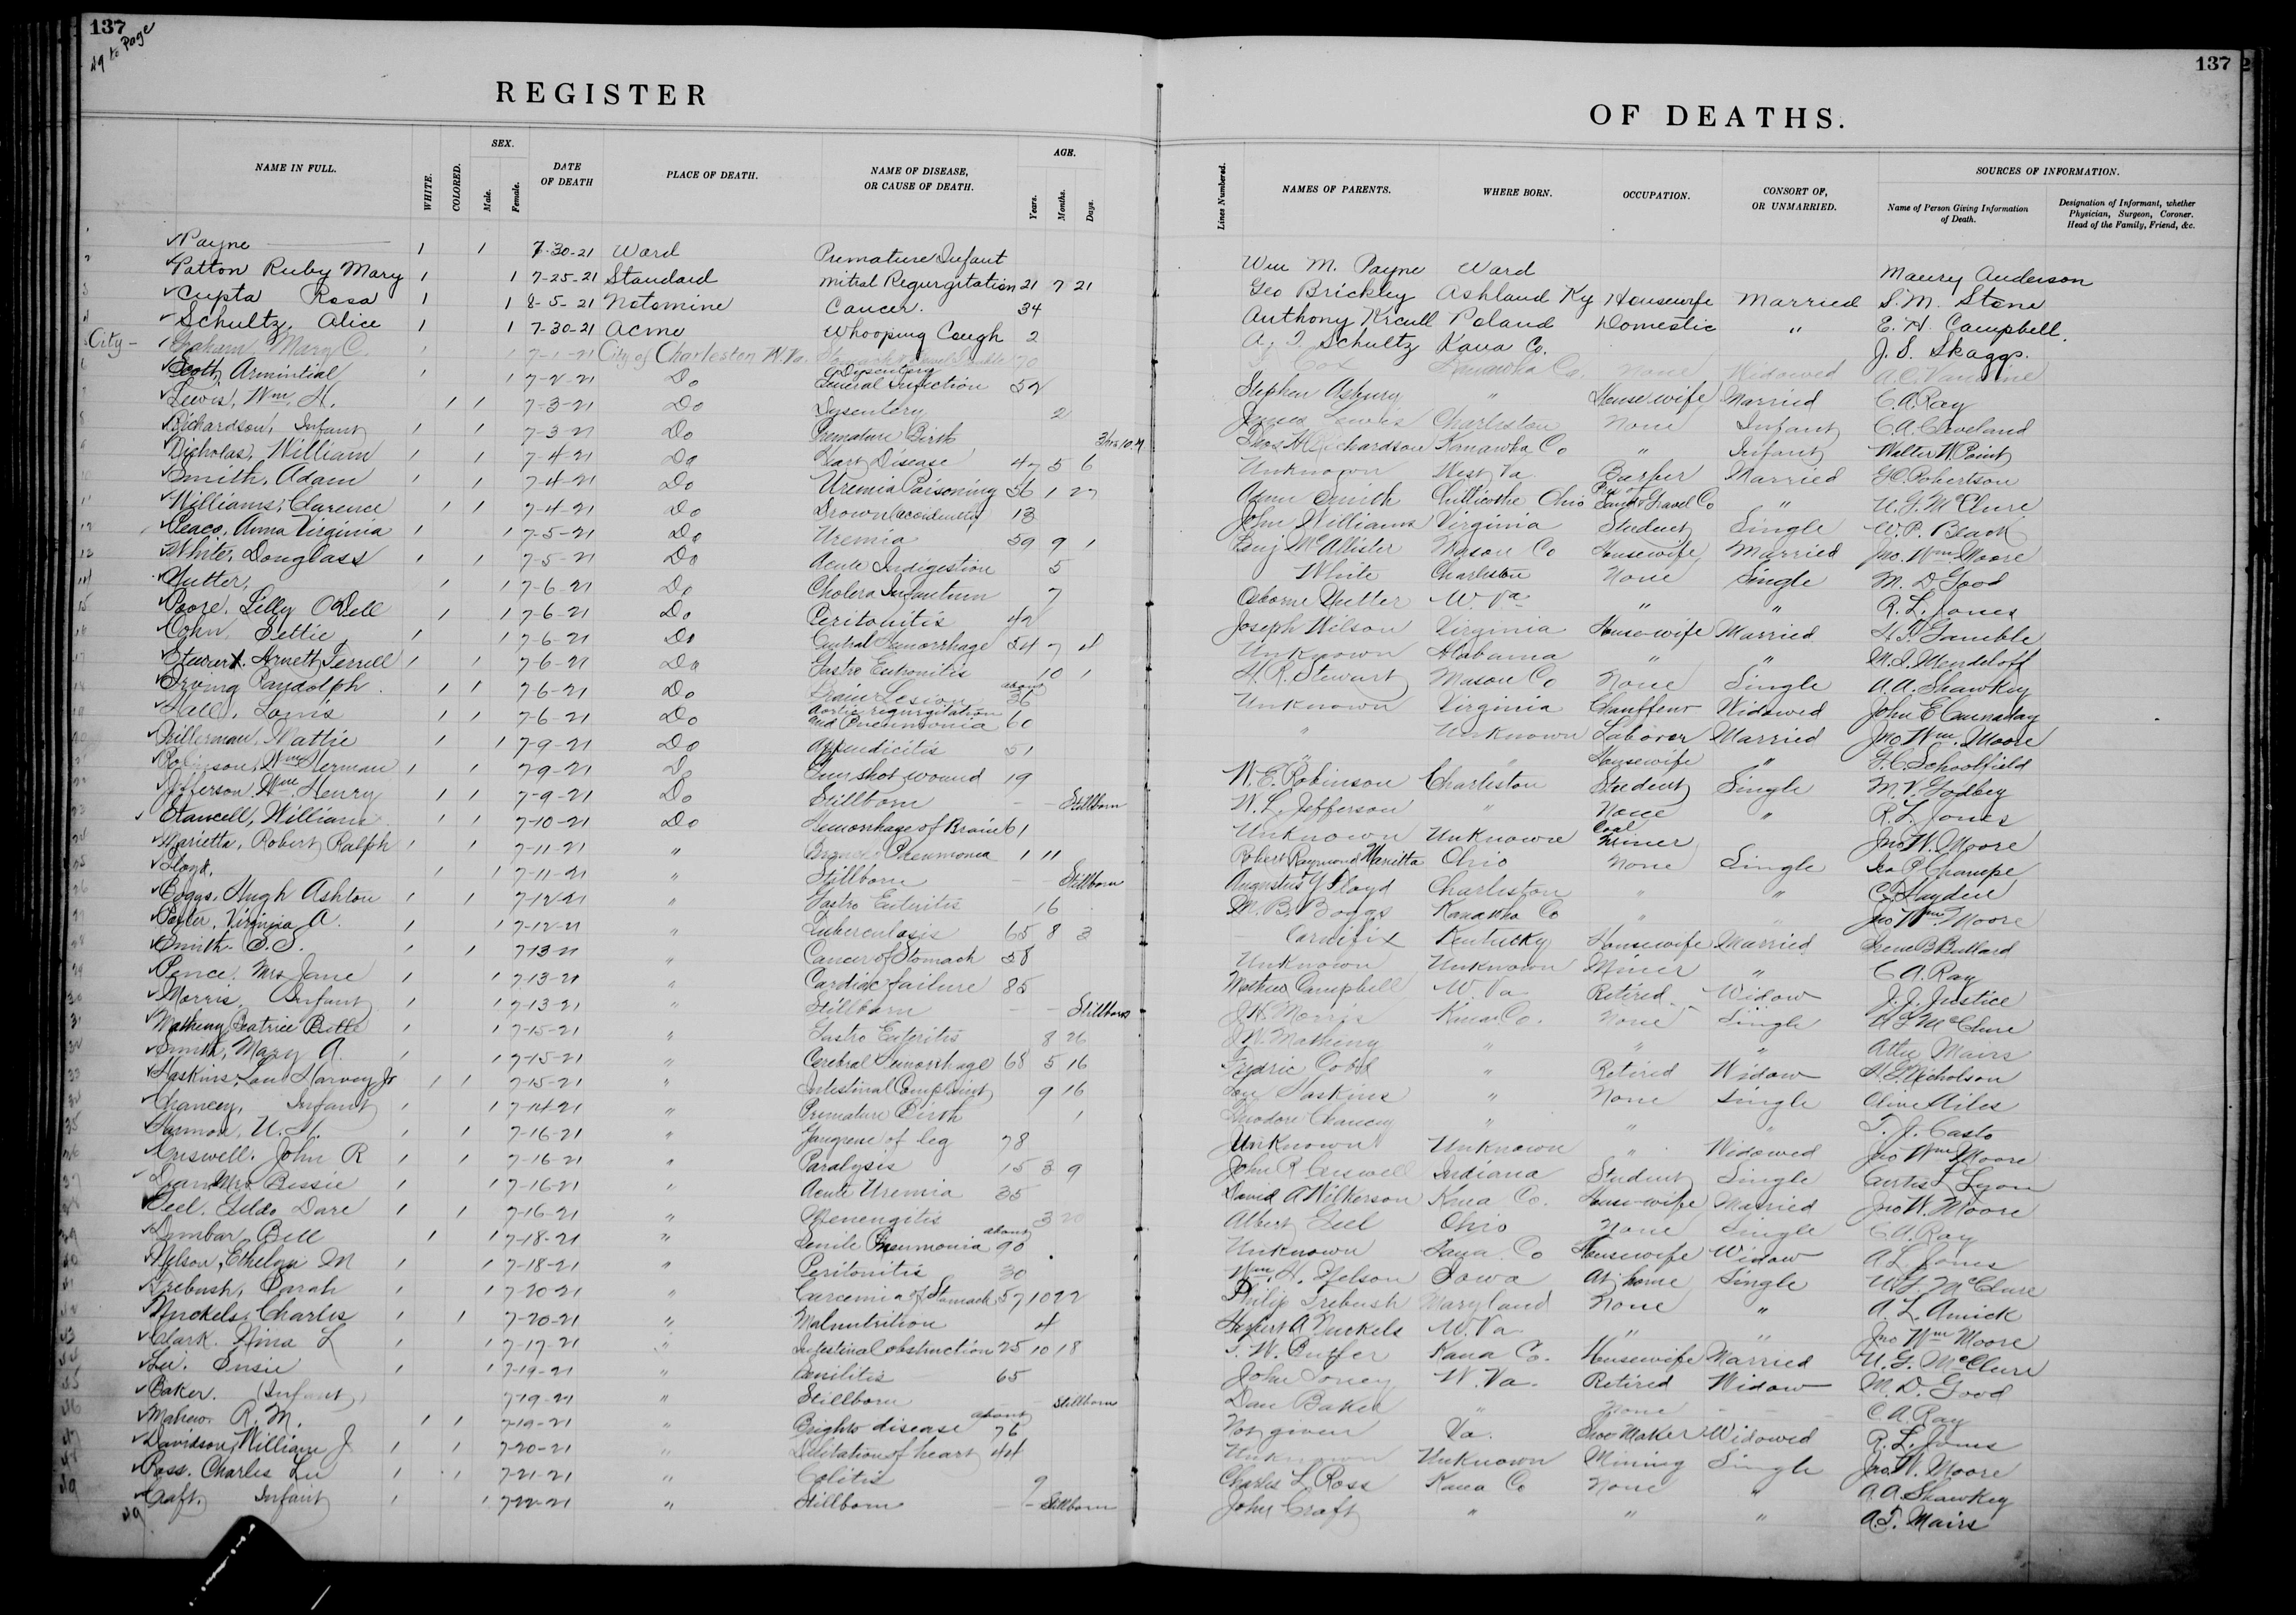 137
49 to Page
REGISTER
NAME IN FULL. WHITE. COLORED. SEX. Male. Female. DATE OF DEATH PLACE OF DEATH. NAME OF DISEASE, OR CAUSE OF DEATH. AGE. Years. Months. Days.
1 Payne 1 1 7-30-21 Ward Premature Infant
2 Patton Ruby Mary 1 1 7-25-21 Standard Mitral Regurgitation 21 7 21
3 Cupta Rosa 1 1 8-5-21 Notomine Cancer. 34
4 Schultz, Alice 1 1 7-30-21 Acme Whooping Cough 2
City - Graham Mary C. 1 1 7-1-21 City of Charleston W.Va. 70
6 Scott, Armintial 1 1 7-2-21 Do Dysentery General Infection 52
7 Lewis, Wm. H. 1 1 7-3-21 Do Dysentery 2
8 Richardson, Infant 1 1 7-3-21 Do Premature Birth 3 hrs 10 M
9 Nicholas, William 1 1 7-4-21 Do Heart Disease 47 5 6
10 Smith, Adam 1 1 7-4-21 Do Uremia Poisoning 56 1 27
11 Williams, Clarence 1 1 7-4-21 Do Drown accidently 13
12 Peaco, Anna Virginia 1 1 7-5-21 Do Uremia 59 9 1
13 White, Douglass 1 1 7-5-21 Do Acute Indigestion 5
14 Nutter, 1 1 7-6-21 Do Cholera Infantum 7
15 Poore, Lilly O'Dell 1 1 7-6-21 Do Peritonitis 42
16 Cohn, Settie 1 1 7-6-21 Do Hemorrhage 54 7 4
17 Stewart, Arnett Terrell 1 1 7-6-21 Do Gastro 10 1
18 Irving Randolph 1 1 7-6-21 Do Brain Lesion about 36
19 Hall, Louis 1 1 7-6-21 Do Aortic regurgitation and Pneumonia 60
20 Mattie 1 1 7-9-21 Do Appendicitis 51
21 Robinson, Wm. Herman 1 1 7-9-21 Do Gun shot wound 19
22 Jefferson, Wm. Henry 1 1 7-9-21 Do Stillborn — Stillborn
23 Stancell, William 1 1 7-10-21 Do Hemorrhage of Brain 61
24 Marietta, Robert Ralph 1 1 7-11-21 " Pneumonia 1 11
25 Floyd, 1 1 7-11-21 " Stillborn — Stillborn
26 Boggs, Hugh Ashton 1 1 7-12-21 " Gastro Enteritis 16
27 Virginia A. 1 1 7-12-21 " Tuberculosis 65 8 3
28 Smith, S.S. 1 1 7-13-21 " Cancer of Stomach 58
29 Pence, Mrs Jane 1 1 7-13-21 " Cardiac failure 85
30 Morris, Infant 1 1 7-13-21 " Stillborn — — Stillborn
31 Matheny, Beatrice Belle 1 1 7-15-21 " Gastro Enteritis 8 26
32 Smith, Mary A. 1 1 7-15-21 " Cerebral Hemorrhage 68 5 16
33 Haskins, Harvey Jr 1 1 7-15-21 " Intestinal Complaint 9 16
34 Chancey, Infant 1 1 7-14-21 " Premature Birth 1
35 Harmon, U. M. 1 1 7-16-21 " Gangrene of leg 78
36 Criswell, John R 1 1 7-16-21 " Paralysis 15 3 9
37 Mrs. Bessie 1 1 7-16-21 " Acute Uremia 35
38 Geel, Gildo Dare 1 1 7-16-21 " Menengitis 3 20
39 Dunbar, Bell 1 1 7-18-21 " Senile Pneumonia about 90
40 Nelson, Ethelga M 1 1 7-18-21 " Peritonitis 30
41 Trebush, Sarah 1 1 7-20-21 " Carcemia of Stomach 57 10 22
42 Nuckels, Charles 1 1 7-20-21 " Malnutrition 4
43 Clark, Nina L 1 1 7-17-21 " Intestinal obstruction 25 10 18
44 Susie 1 1 7-19-21 " Senilitis 65
45 Baker. (Infant) 7-19-21 " Stillborn — Stillborn
46 R. M. 1 1 7-19-21 " Brights disease about 76
47 Davidson, William J 1 1 7-20-21 " Dilitation of heart 44
48 Ross, Charles Lee 1 1 7-21-21 " Colitis 9
49 Craft, Infant 1 1 7-22-21 " Stillborn — — Stillborn
49
137
OF DEATHS.
Lines Numbered. NAMES OF PARENTS. WHERE BORN. OCCUPATION. CONSORT OF, OR UNMARRIED. SOURCES OF INFORMATION. Name of Person Giving Information of Death. Designation of Informant, whether Physician, Surgeon, Coroner. Head of the Family, Friend, &c.
Wm M. Payne Ward Maury Anderson
Geo Brickley Ashland Ky Housewife Married S. M. Stone
Anthony Krcull Poland Domestic " E. H. Campbell.
A. T. Schultz Kana Co. J. S. Skaggs.
Cox Kanawha Co. None Widowed
Stephen Asbury " Housewife Married C. A. Ray
James Lewis Charleston None Infant C. A. Cleveland
Thos H Richardson Kanawha Co " Infant Walter W. Point
Unknown West Va Barber Married Robertson
Adam Smith Chillicothe Ohio Pres of Sand & Gravel Co " U. G. McClure
John Williams Virginia Student Single W. P. Black
Benj McAllister Mason Co Housewife Married Jno. Wm. Moore
White Charleston None Single M. D. Good
Osborne Nutter W. Va " " R. L. Jones
Joseph Wilson Virginia Housewife Married Gamble
Unknown Alabama " " M. I. Mendeloff
H. R. Stewart Mason Co None Single A. A. Shawkey
Unknown Virginia Chauffeur Widowed John E Cannaday
" Unknown Laborer Married Jno Wm. Moore
" " Housewife " Schoolfield
W. E. Robinson Charleston Student Single M. V. Godbey
W. L. Jefferson " None " R. L. Jones
Unknown Unknown Coal Miner Jno W. Moore
Robert Raymond Marietta Ohio None Single Geo P. Champe
Augustus Floyd Charleston " " Hayden
M. B. Boggs Kanawha Co " " Jno Wm Moore
Carnifix Kentucky Housewife Married Irene B Bullard
Unknown Unknown Miner " C. A. Ray
Mathew Campbell W. Va Retired Widow J. J. Justice
J H Morris Kana Co. None Single U G McClure
J. W. Matheny " " " Mairs
Cobb " Retired Widow Nicholson
Haskins " None Single Aites
Theodore Chancey " " " T. J. Casto
Unknown Unknown " Widowed Jno Wm Moore
John R Criswell Indiana Student Single Curtis Lyon
David A Wilkerson Kana Co. Housewife Married Jno W. Moore
Albert Geel Ohio None Single C. A. Ray
Unknown Co Housewife Widow Jones
Wm. H. Nelson Iowa At home Single U. G. McClure
Philip Trebush Maryland None " A. L. Amick
Herbert A Nuckels W. Va " " Jno Wm Moore
T. W. Butler Kana Co. Housewife Married U. G. McClure
John Toney W. Va. Retired Widow M. D. Good
Dan Baker " None — — C. A. Ray
Not given Va. Shoe Maker Widowed R. L. Jones
Unknown Unknown Mining Single Jno. W. Moore
Charles L Ross Kana Co None " A. A. Shawkey
John Craft " " " A. T. Mairs